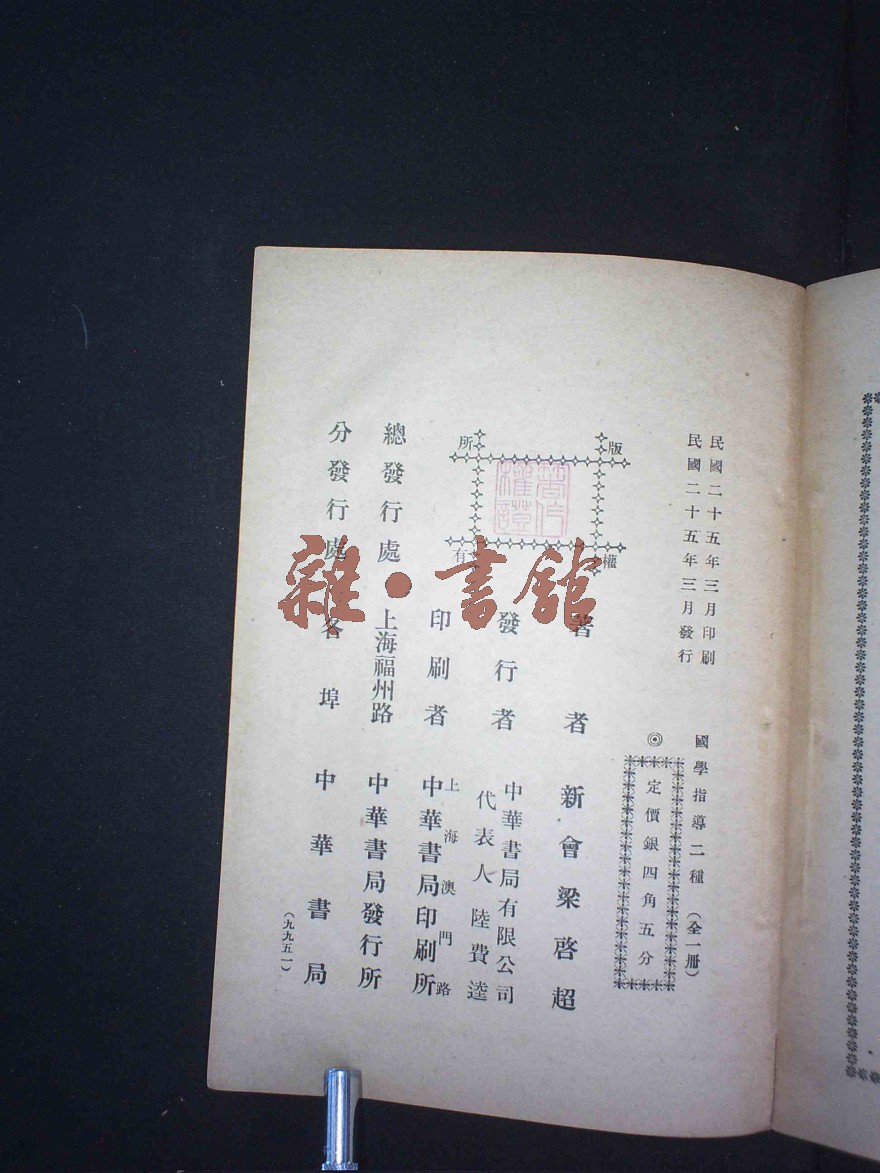 民國二十五年三月印刷
民國二十五年三月發行
國學指導二種（全一册）
◎定價銀四角五分
版權所有
著作權證
著者 新會梁啓超
發行者 中華書局有限公司
代表人 陸費逵
印刷者 上海澳門路
中華書局印刷所
總發行處 上海福州路 中華書局發行所
分發行處 各埠 中華書局
（九九五一）
雜·書館